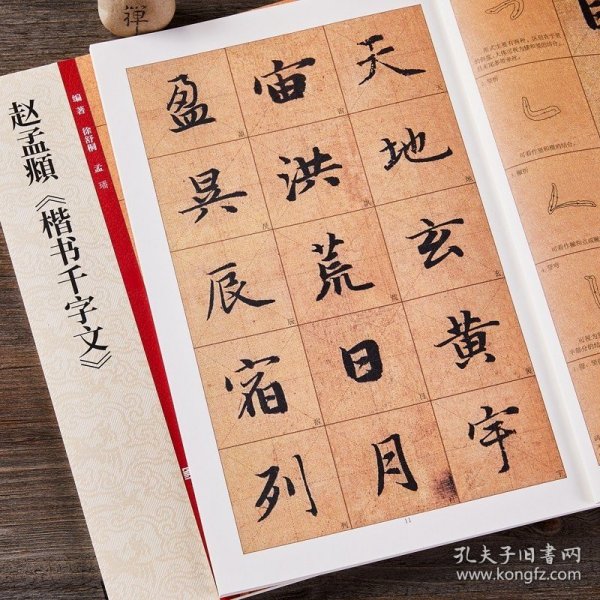 禪
天地玄黄宇
宙洪荒日月
盈昃辰宿列
11
可看作竖和横的结合。
赵孟頫《楷书千字文》
编著 徐舒桐 孟瑶
孔夫子旧书网
www.kongfz.com